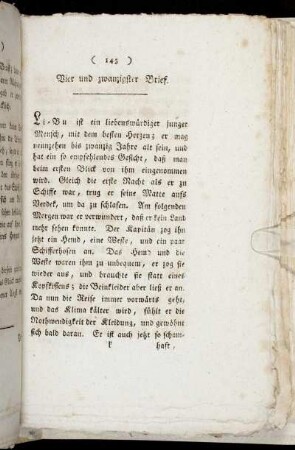 ( 145 )
Vier und zwanzigster Brief.
Li-Bu ist ein liebenswürdiger junger
Mensch, mit dem besten Herzen; er mag
neunzehen bis zwanzig Jahre alt sein, und
hat ein so empfehlendes Gesicht, daß man
beim ersten Blick von ihm eingenommen
wird. Gleich die erste Nacht als er zu
Schiffe war, trug er seine Matte aufs
Verdek, um da zu schlafen. Am folgenden
Morgen war er verwundert, daß er kein Land
mehr sehen konnte. Der Kapitän zog ihm
jetzt ein Hemd, eine Weste, und ein paar
Schifferhosen an. Das Hemd und die
Weste waren ihm zu unbequem, er zog sie
wieder aus, und brauchte sie statt eines
Kopfkissens; die Beinkleider aber ließ er an.
Da nun die Reise immer vorwärts geht,
und das Klima kälter wird, fühlt er die
Nothwendigkeit der Kleidung, und gewöhnt
sich bald daran. Er ist auch jetzt so scham-
haft,